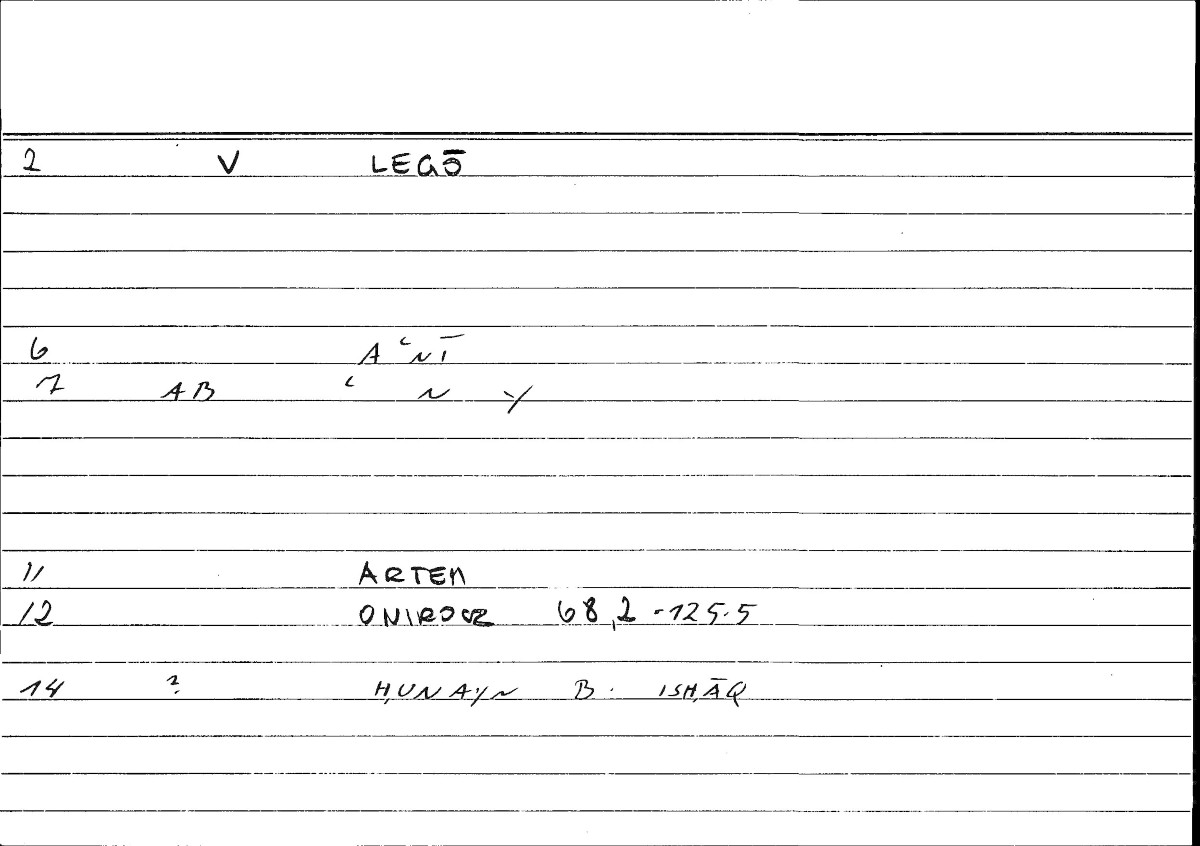 2 V LEGŌ
6 AʿNĪ
7 AB ʿ N Y
11 ARTEM
12 ONIROCR 68,2-125.5
14 ? ḤUNAYN B. ISḤĀQ